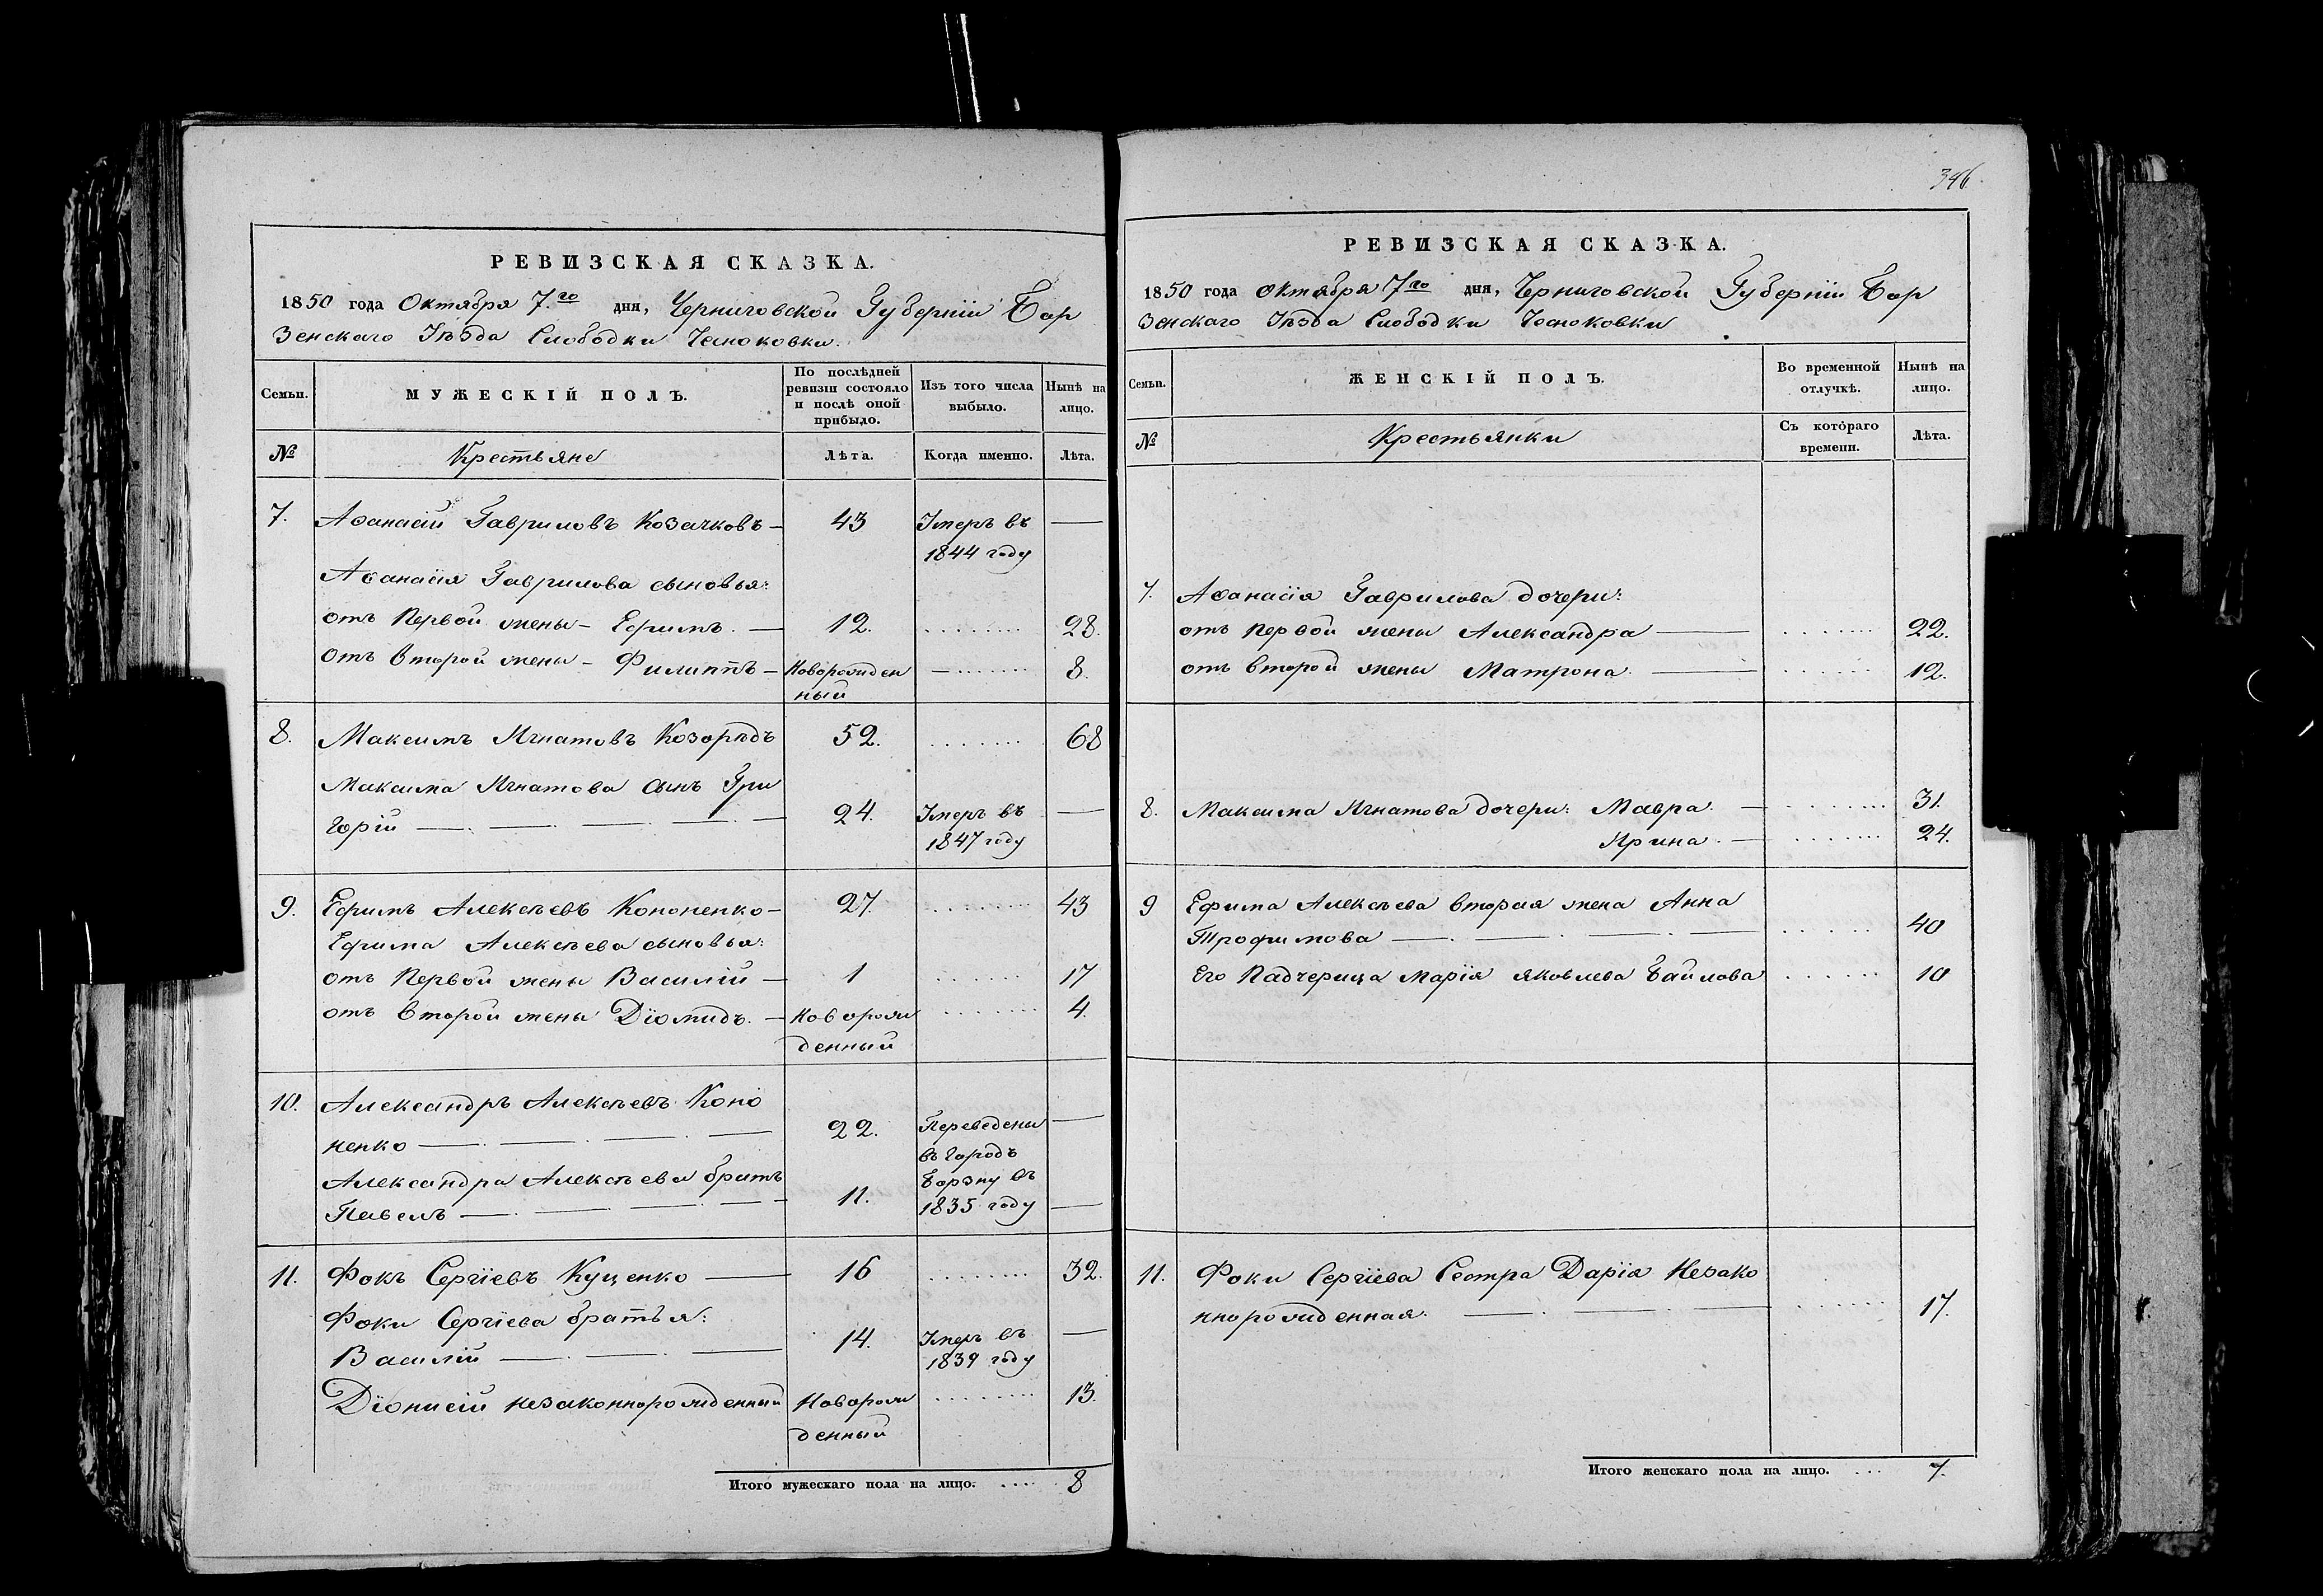 РЕВИЗСКАЯ СКАЗКА.
1850 года Октября 7.го дня, Черниговской Губерніи Бор
зенскаго Уѣзда Слободки Чесноковки.
Семьи.
МУЖЕСКІЙ ПОЛЪ.
По послѣдней
ревизіи состояло
и послѣ оной
прибыло.
Изъ того числа
выбыло.
Нынѣ на
лицо.
№
Крестьяне
Лѣта.
Когда именно.
Лѣта.
7. Афанасій Гавриловъ Козачковъ — 43 Умеръ въ —
1844 году
Афанасія Гаврилова сыновья:
отъ Первой жены – Ефимъ. — 12. ........ 28.
отъ Второй жены – Филиппъ – Новорожден — ....... 8.
ный
8. Максимъ Игнатовъ Козорѣдъ 52. ....... 68
Максима Игнатова сынъ Гри
горій — . — — . — . — 24. Умеръ въ —
1847 году
9. Ефимъ Алексѣевъ Кононенко – 27. ........ 43
Ефима Алексѣева сыновья:
отъ Первой жены Василій — 1 ....... 17
отъ второй жены Діомидъ. — Новорож ........ 4.
денный
10. Александръ Алексѣевъ Коно
ненко — . — . — . — 22. Переведены —
въ городъ
Александра Алексѣева братъ Борзну въ
Павелъ — . — . — . — 11. 1835 году —
11. Фокъ Сергіевъ Куценко — 16 ........ 32.
Фоки Сергіева братья:
Василій — . — . — 14. Умеръ въ —
1839 году
Діонисій незаконнорожденный Новорож ........ 13.
денный
Итого мужескаго пола на лицо. .... 8
346.
РЕВИЗСКАЯ СКАЗКА.
1850 года Октября 7го дня, Черниговской Губерніи Бор
зенскаго Уѣзда Слободки Чесноковки
Семьи.
ЖЕНСКІЙ ПОЛЪ.
Во временной
отлучкѣ.
Нынѣ на
лицо.
№
Крестьянки
Съ котораго
времени.
Лѣта.
7. Афанасія Гаврилова дочери:
отъ первой жены Александра — ....... 22.
отъ второй жены Матрона. — ...... 12.
8. Максима Игнатова дочери: Мавра. — ....... 31.
Ирина. — ....... 24.
9 Ефима Алексѣева вторая жена Анна
Трофимова — . — . — — ...... 40
Его Падчерица Марія Яковлева Байлова ...... 10
11. Фоки Сергіева Сестра Дарія Незако
ннорожденная. — . — . — ...... 17.
Итого женскаго пола на лицо. ... 7.